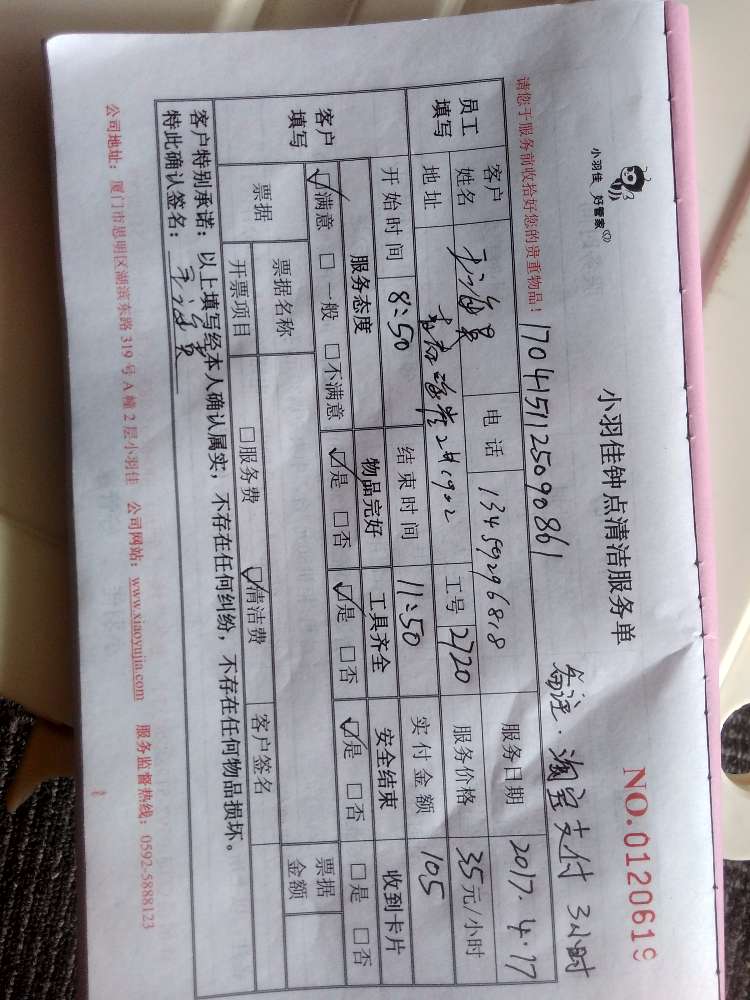 小羽佳 好管家
小羽佳钟点清洁服务单
NO.0120619
备注·淘宝支付 3小时
请您于服务前收拾好您的贵重物品！ 1704151125090861
员工填写 客户姓名 电话 13459296818 服务日期 2017.4.17
地址 2#1902 工号 2720 服务价格 35元/小时
开始时间 8:50 结束时间 11:50 实付金额 105
客户填写 服务态度 物品完好 工具齐全 安全结束 收到卡片
☑满意 □一般 □不满意 ☑是 □否 ☑是 □否 ☑是 □否 □是 □否
票据 票据名称 客户签名 票据金额
开票项目 □服务费 ☑清洁费
客户特别承诺：以上填写经本人确认属实，不存在任何纠纷，不存在任何物品损坏。
特此确认签名：
公司地址：厦门市思明区湖滨东路 319 号 A 幢 2 层小羽佳 公司网站：www.xiaoyujia.com 服务监督热线：0592-5888123